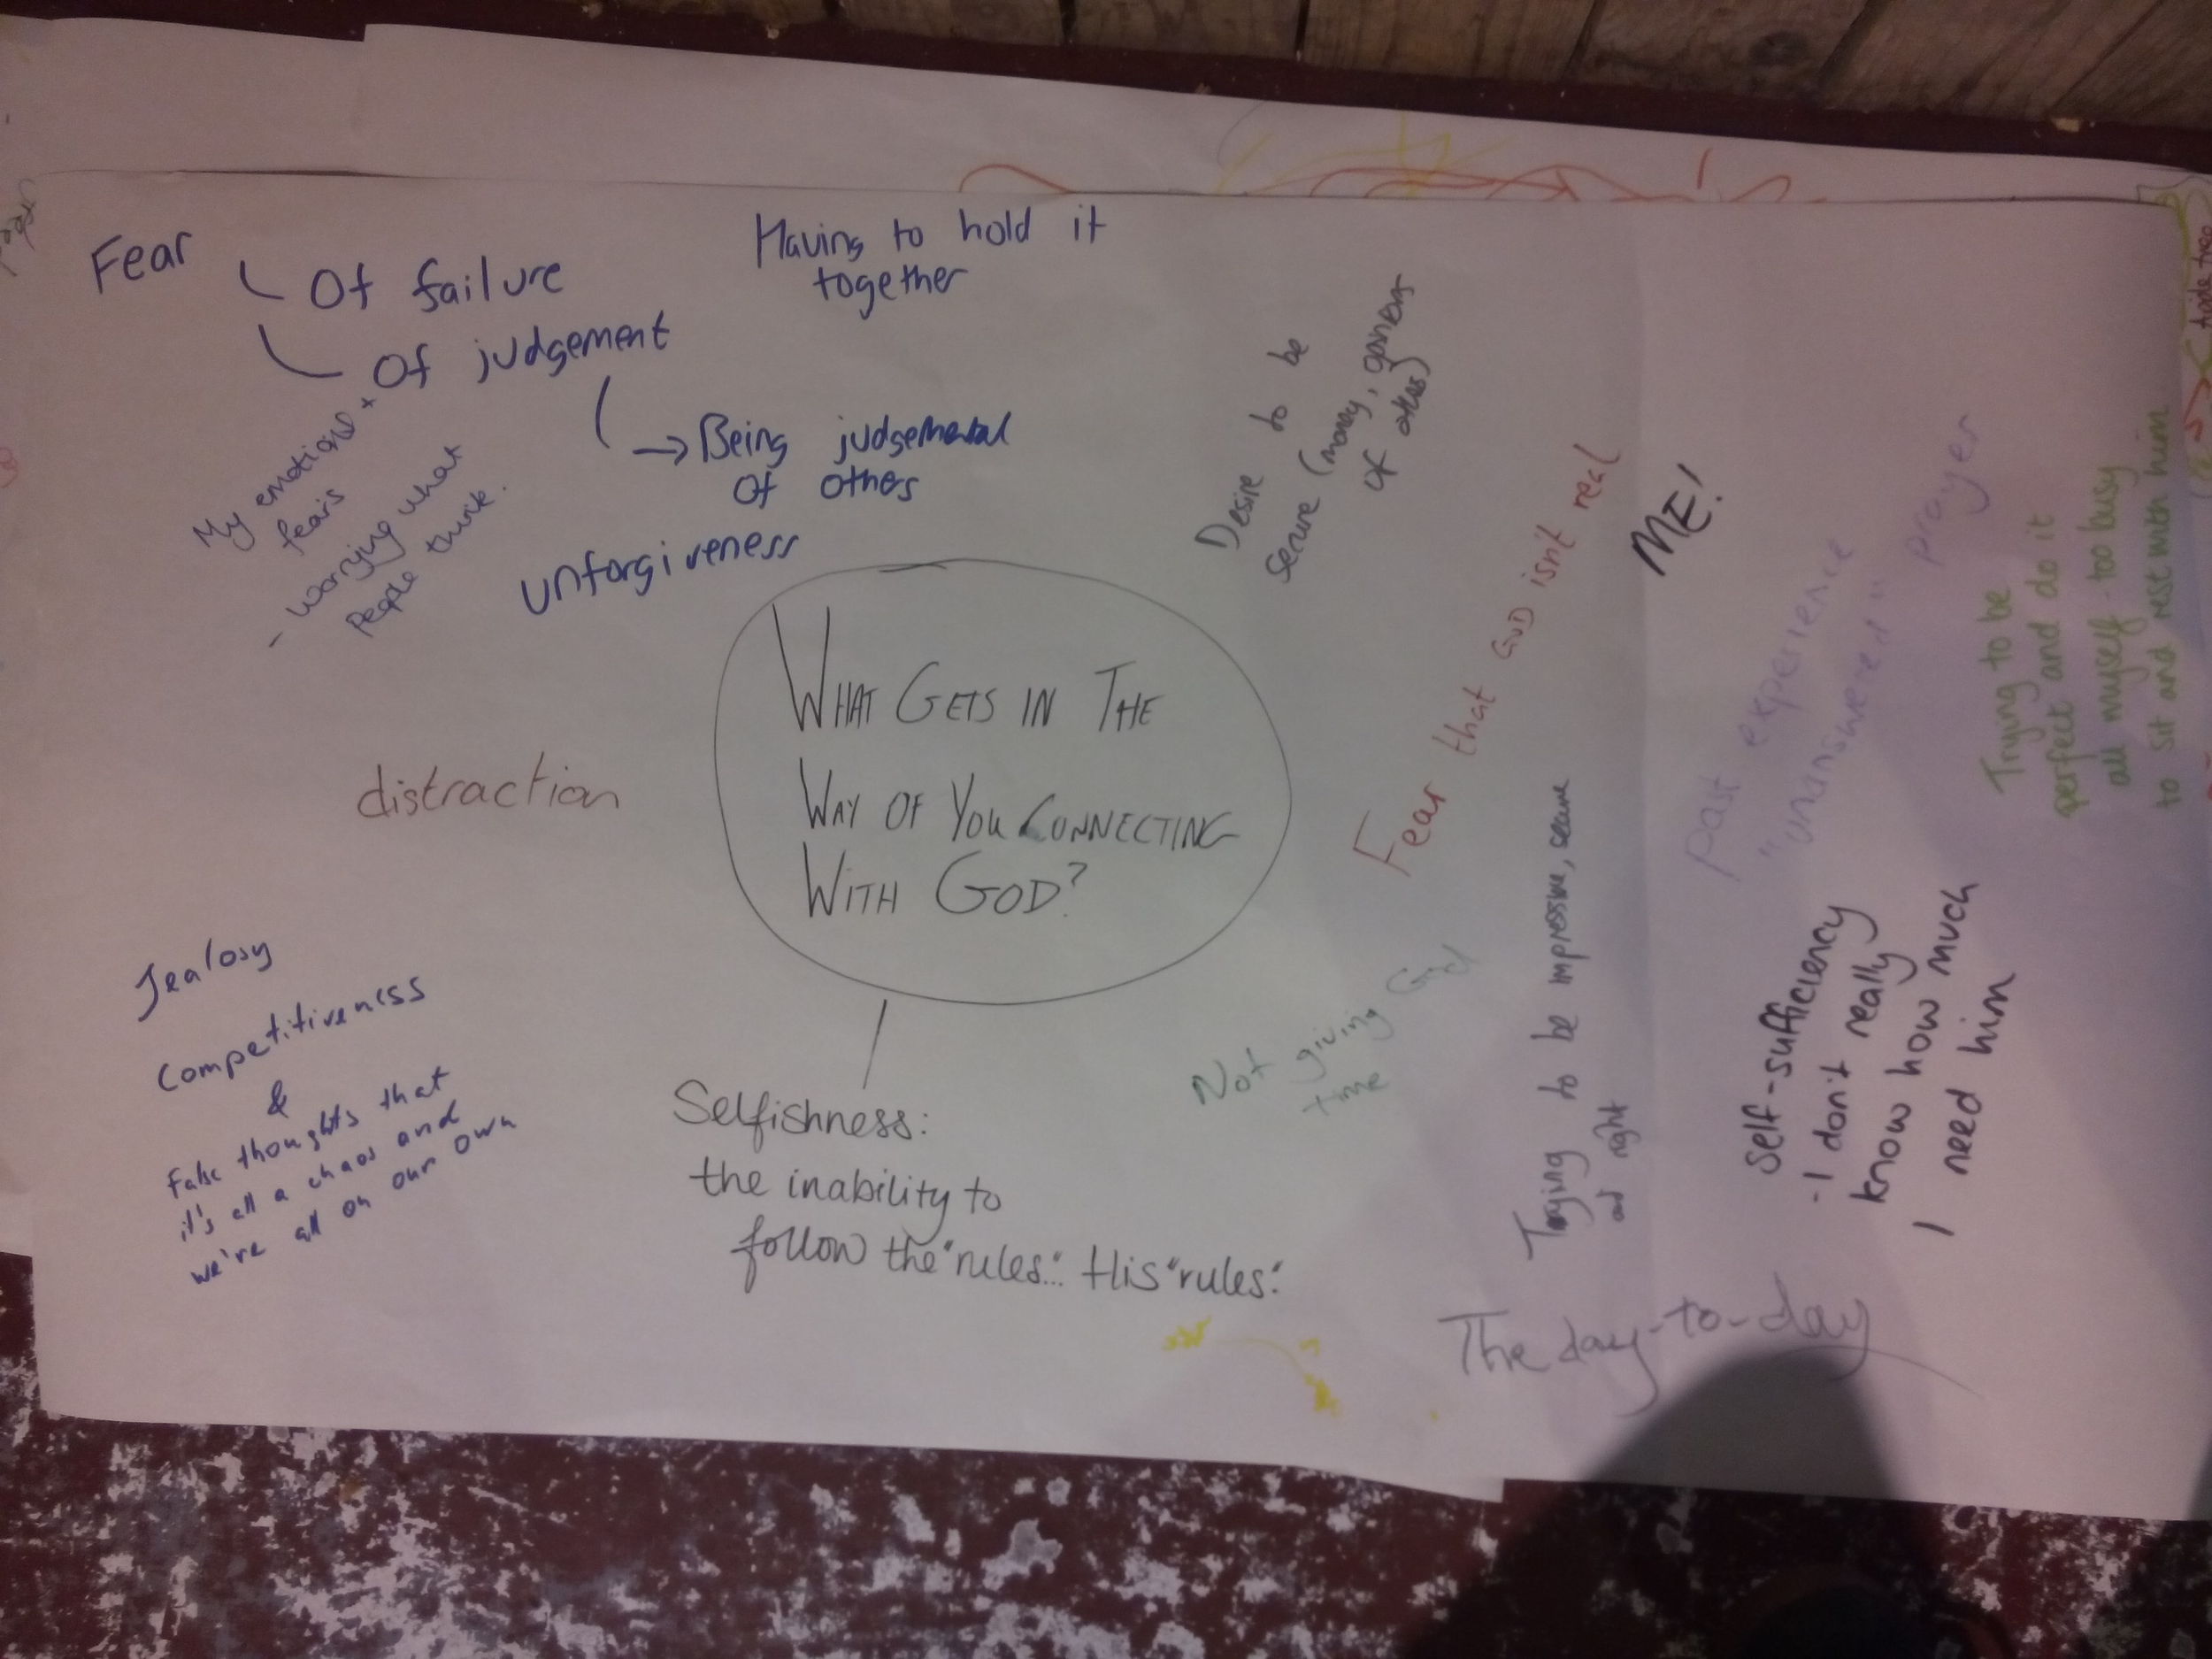 Fear
Of failure
Of judgement
Being judgemental
Of others
Having to hold it
together
My emotions +
fears
- Worrying what
People think.
unforgiveness
Desire to be
secure (money,
of others)
Fear that GOD isn't real
ME!
past experience
"unanswered" prayer
Trying to be
perfect and do it
all myself - too busy
to sit and rest with him
WHAT GETS IN THE
WAY OF YOU CONNECTING
WITH GOD?
distraction
Jealosy
Competitiveness
&
False thoughts that
it's all a chaos and
we're all on our own
Selfishness:
the inability to
follow the "rules..." His "rules."
Not giving God
time
Trying to be impressive, secure
and right
Self-sufficiency
- I don't really
know how much
I need him
The day-to-day